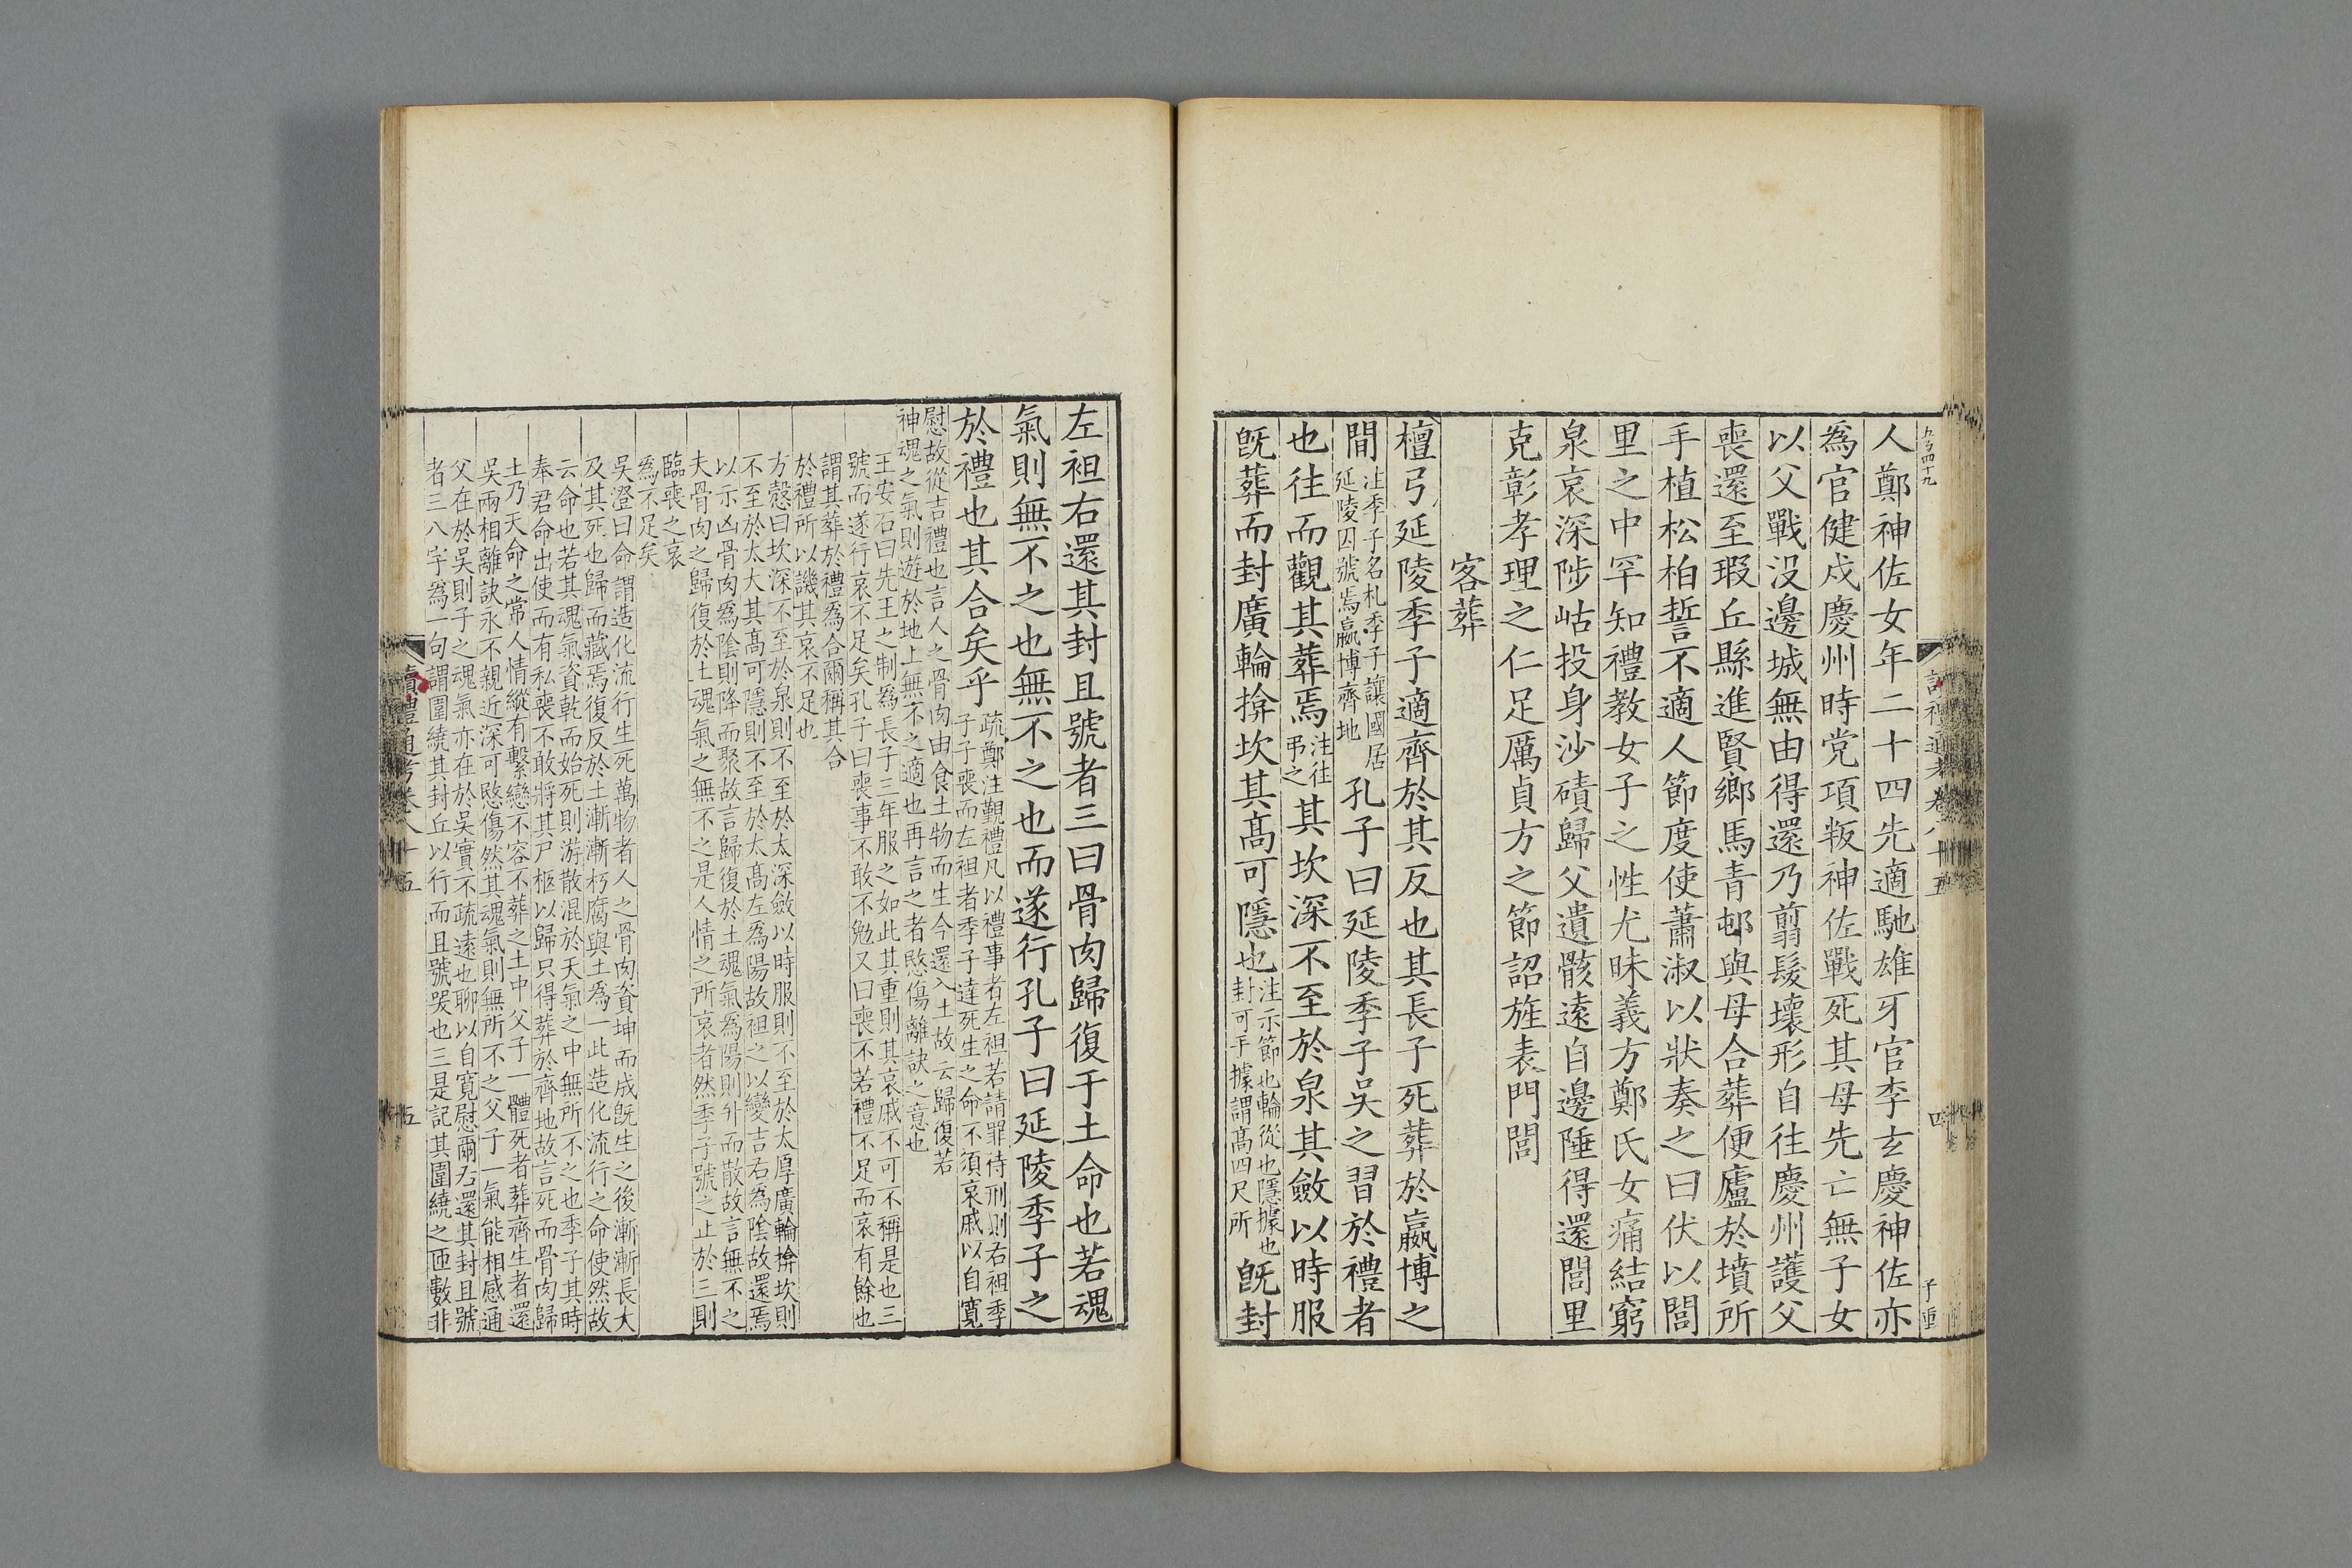 五百四十九
人鄭神佐女年二十四先適馳雄牙官李玄慶神佐亦
為官健戍慶州時党項叛神佐戰死其母先亡無子女
以父戰没邊城無由得還乃翦髮壞形自往慶州護父
喪還至瑕丘縣進賢鄉馬青邨與母合葬便廬於墳所
手植松柏誓不適人節度使蕭淑以狀奏之曰伏以閭
里之中罕知禮教女子之性尤昧義方鄭氏女痛結窮
泉哀深陟岵投身沙磧歸父遺骸遠自邊陲得還閭里
克彰孝理之仁足厲貞方之節詔旌表門閭
客葬
檀弓延陵季子適齊於其反也其長子死葬於嬴博之
間注季子名札季子讓國居延陵因號焉嬴博齊地孔子曰延陵季子吳之習於禮者
也往而觀其葬焉注往弔之其坎深不至於泉其斂以時服
旣葬而封廣輪揜坎其高可隱也注示節也輪從也隱據也封可手據謂高四尺所旣封
讀禮通考卷八十五
四
子重
左袒右還其封且號者三曰骨肉歸復于土命也若魂
氣則無不之也無不之也而遂行孔子曰延陵季子之
於禮也其合矣乎疏鄭注覲禮凡以禮事者左袒若請罪待刑則右袒季子子喪而左袒者季子達死生之命不須哀戚以自寬
慰故從吉禮也言人之骨肉由食土物而生今還入土故云歸復若
神魂之氣則遊於地上無不之適也再言之者愍傷離訣之意也
王安石曰先王之制為長子三年服之如此其重則其哀戚不可不稱是也三
號而遂行哀不足矣孔子曰喪事不敢不勉又曰喪不若禮不足而哀有餘也
謂其葬於禮為合爾稱其合
於禮所以譏其哀不足也
方慤曰坎深不至於泉則不至於太深斂以時服則不至於太厚廣輪揜坎則
不至於太大其高可隱則不至於太高左為陽故袒之以變吉右為陰故還焉
以示凶骨肉為陰則降而聚故言歸復於土魂氣為陽則升而散故言無不之
夫骨肉之歸復於土魂氣之無不之是人情之所哀者然季子號之止於三則
臨喪之哀
為不足矣
吳澄曰命謂造化流行生死萬物者人之骨肉資坤而成旣生之後漸漸長大
及其死也歸而藏焉復反於土漸漸朽腐與土為一此造化流行之命使然故
云命也若其魂氣資乾而始死則游散混於天氣之中無所不之也季子其時
奉君命出使而有私喪不敢將其尸柩以歸只得葬於齊地故言死而骨肉歸
土乃天命之常人情縱有繫戀不容不葬之土中父子一體死者葬齊生者還
吳兩相離訣永不親近深可愍傷然其魂氣則無所不之父子一氣能相感通
父在於吳則子之魂氣亦在於吳實不疏遠也聊以自寬慰爾右還其封且號
者三八字為一句謂圍繞其封丘以行而且號哭也三是記其圍繞之匝數非
讀禮通考卷八十五
五